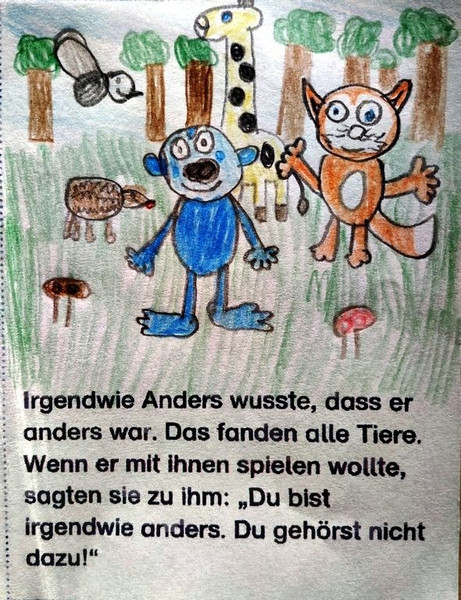 Irgendwie Anders wusste, dass er
anders war. Das fanden alle Tiere.
Wenn er mit ihnen spielen wollte,
sagten sie zu ihm: „Du bist
irgendwie anders. Du gehörst nicht
dazu!“